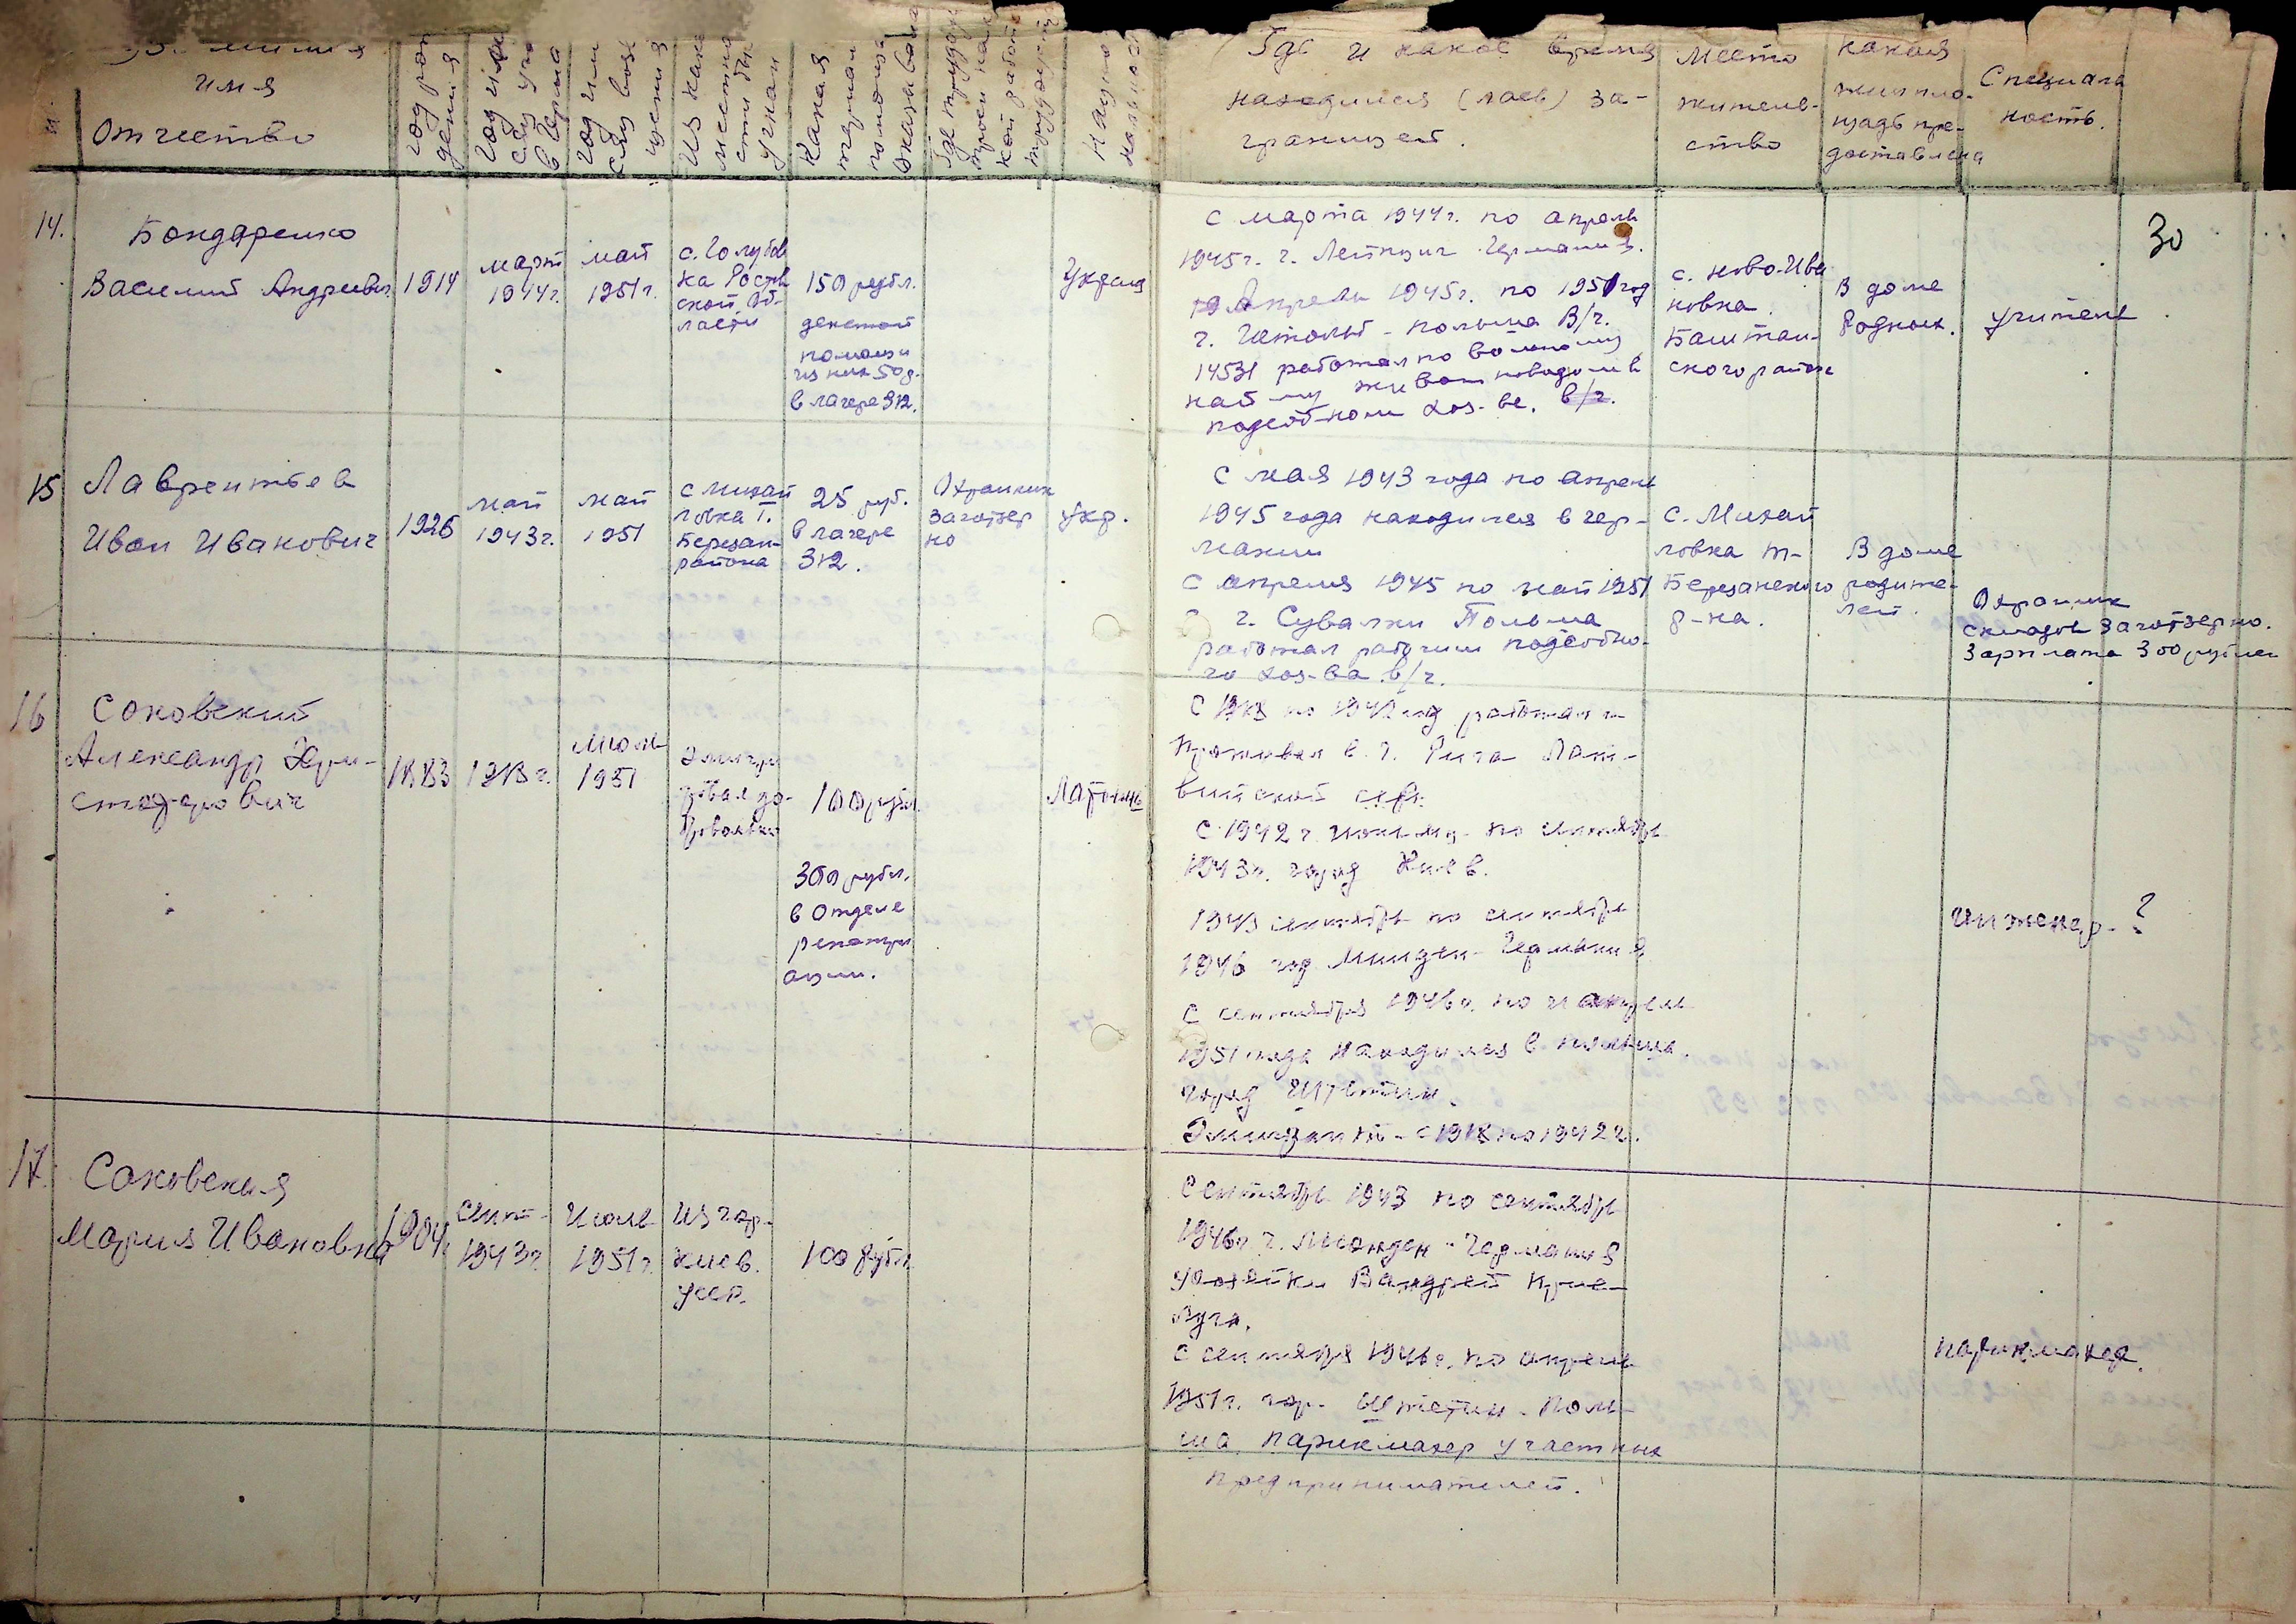 имя
Отчество
Год рож
дения
Год и м-
сяц уго
в Герма
Год и м
сяц возв
щения
Из како
местно
сти бы
угнан
Какая
матери
помощь
оказывала
Где трудоус
троен на ка
кой работ
трудоустр
Нацио
нальность
Где и какое время
находился (лась) за-
границей.
Место
житель-
ство
какая
жилпло-
щадь пре-
доставлена
Специаль
ность.
30
14.
Бондаренко
Василий Андреевич
1914
март
1944г.
май
1951г.
с. Голубов
ка Ростов
ской об-
ласти
150 рубл.
денежной
помощи
из них 50 р.
в лагере 312.
Украин
с марта 1944г. по апрель
1945г. г. Лейпциг Германия.
Апрель 1945г. по 1951 год
г. - Польша В/ч.
14531 работал по вольному
найму животноводом в
подсобном хоз-ве. в/ч.
с. Ново-Ива
новка.
Баштан-
ского района
В доме
родных.
учитель
15
Лаврентьев
Иван Иванович
1926
май
1943г.
май
1951
с Михай
ловка Т.
Березан-
района
25 руб.
в лагере
312.
Охранник
Заготзер
но
Укр.
с мая 1943 года по апрель
1945 года находился в Гер-
мании
с апреля 1945 по май 1951
г. Сувалки Польша
работал рабочим подсобно-
го хоз-ва в/ч.
с. Михай
ловка Т-
Березанского
р-на.
В доме
родите-
лей.
Охранник
складов Заготзерно.
Зарплата 300 рублей
16
Соковский
Александр Хри-
стофорович
1883
1918г.
Июль
1951
Эмигри
ровал до-
бровольно
100 рубл.
300 рубл.
в Отделе
репатри
ации.
Латыш
с 1918 по 1942 год работал и
проживал в г. Рига Лат-
вийской ССР.
с 1942 г. по сентябрь
1943г. город Киев.
1943 сентябрь по сентябрь
1946 год Минден - Германия
с сентября 1946г. по апрель
1951 года находился в Польша.
город Штетин.
Эмигрант - с 1918 по 1942г.
инженер - ?
17.
Соковская
Мария Ивановна
1904
сент-
1943г.
Июль
1951г.
Из гор.
Киев.
УССР.
100 рубл
Сентябрь 1943 по сентябрь
1946г. г. Минден - Германия
у хозяйки
с сентября 1946г. по апрель
1951г. гор. Штетин. Поль-
ша парикмахер у частных
предпринимателей.
парикмахер.